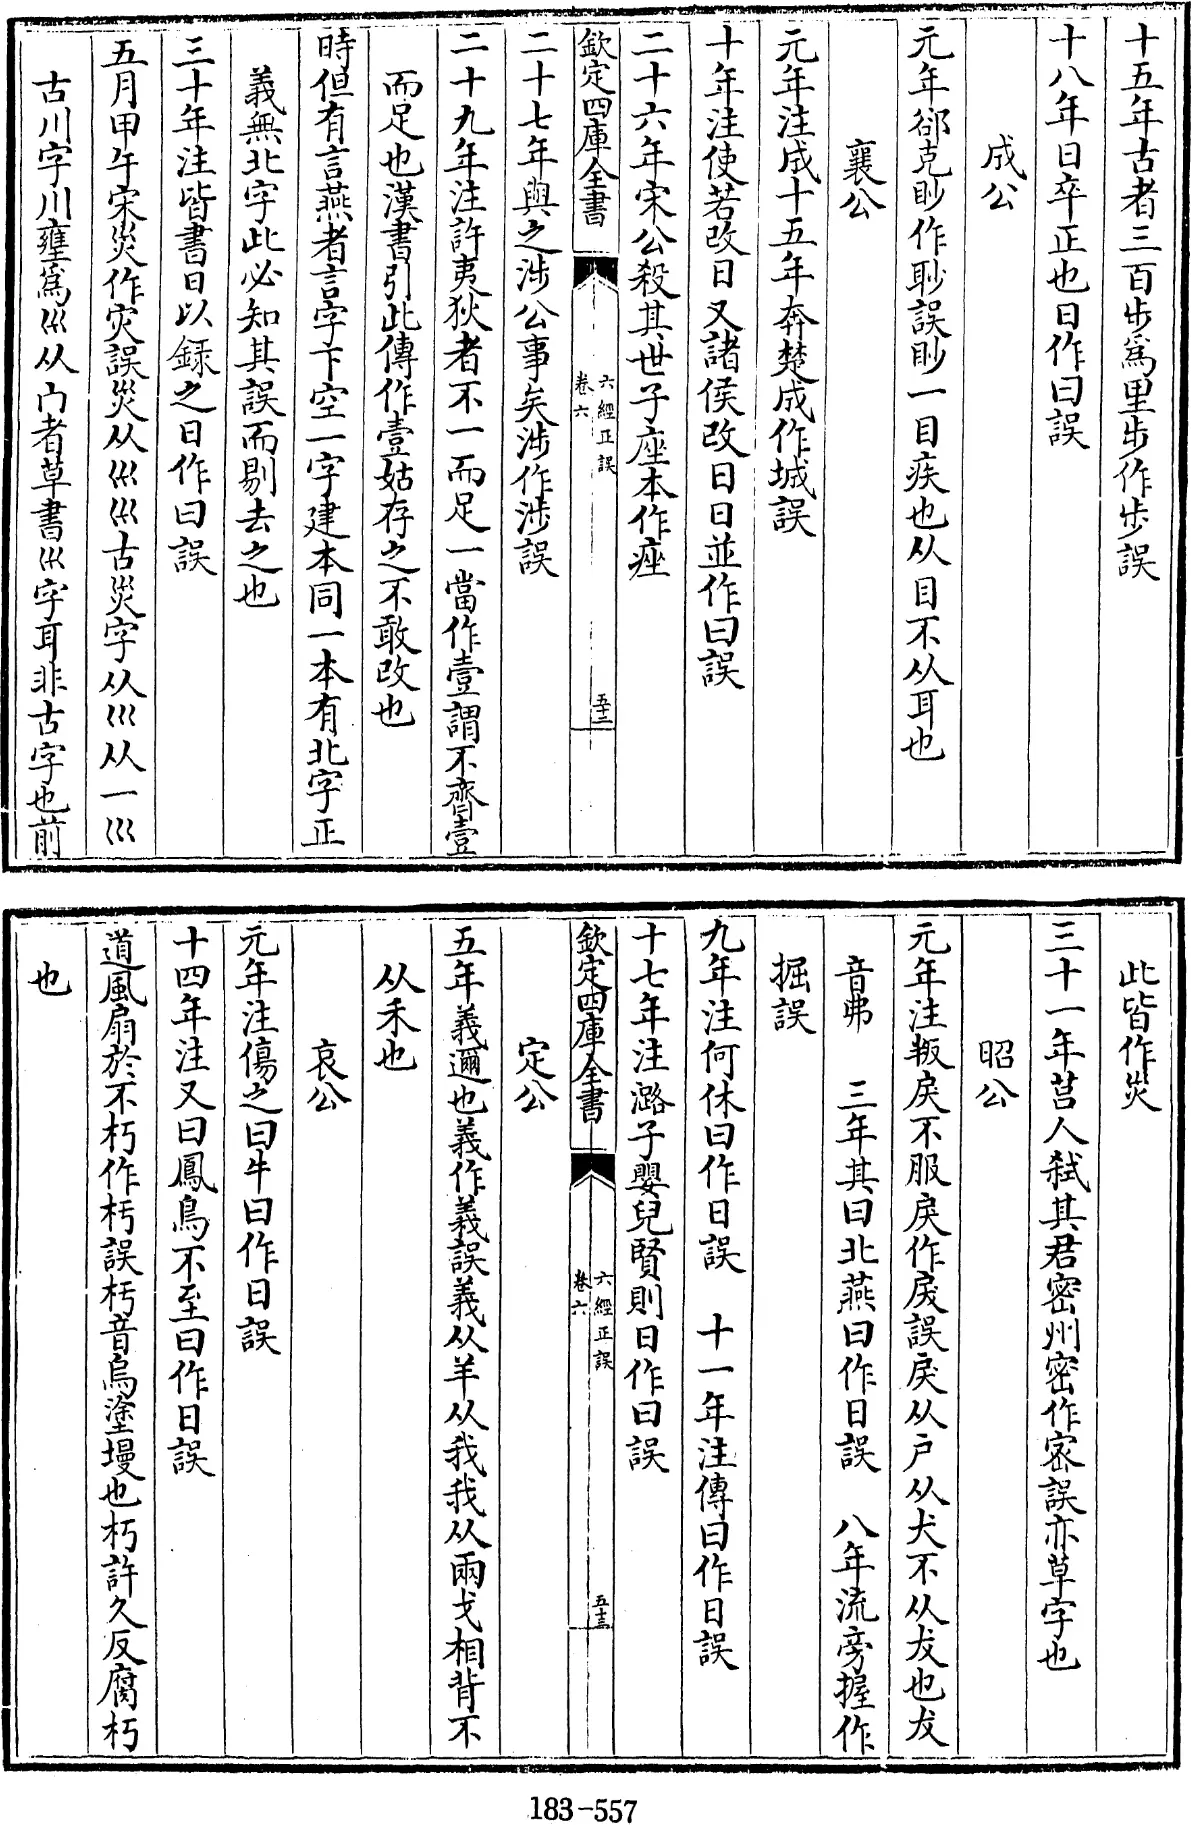 十五年古者三百步爲里步作歩誤
十八年日卒正也日作曰誤
成公
元年郤克眇作䏚誤眇一目疾也从目不从耳也
襄公
元年注成十五年奔楚成作城誤
十年注使若改日又諸侯改日日並作曰誤
二十六年宋公殺其世子座本作痤
欽定四庫全書
六經正誤
卷六
五十二
二十七年與之涉公事矣涉作渉誤
二十九年注許夷狄者不一而足一當作壹謂不齊壹
而足也漢書引此傳作壹姑存之不敢改也
時但有言燕者言字下空一字建本同一本有北字正
義無北字此必知其誤而剔去之也
三十年注皆書日以録之日作曰誤
五月甲午宋災作灾誤災从巛巛古災字从巛从一巛
古川字川壅爲巛从宀者草書巛字耳非古字也前
此皆作災
三十一年莒人弑其君密州密作宻誤亦草字也
昭公
元年注叛戾不服戾作戻誤戾从户从犬不从犮也犮
音弗　三年其曰北燕曰作日誤　八年流旁握作
掘誤
九年注何休曰作日誤　十一年注傳曰作日誤
十七年注潞子嬰兒賢則日作曰誤
欽定四庫全書
六經正誤
卷六
五十三
定公
五年義邇也義作義誤義从羊从我我从兩戈相背不
从禾也
哀公
元年注傷之曰牛曰作日誤
十四年注又曰鳳鳥不至曰作日誤
道風扇於不朽作杇誤杇音烏塗墁也朽許久反腐朽
也
183-557